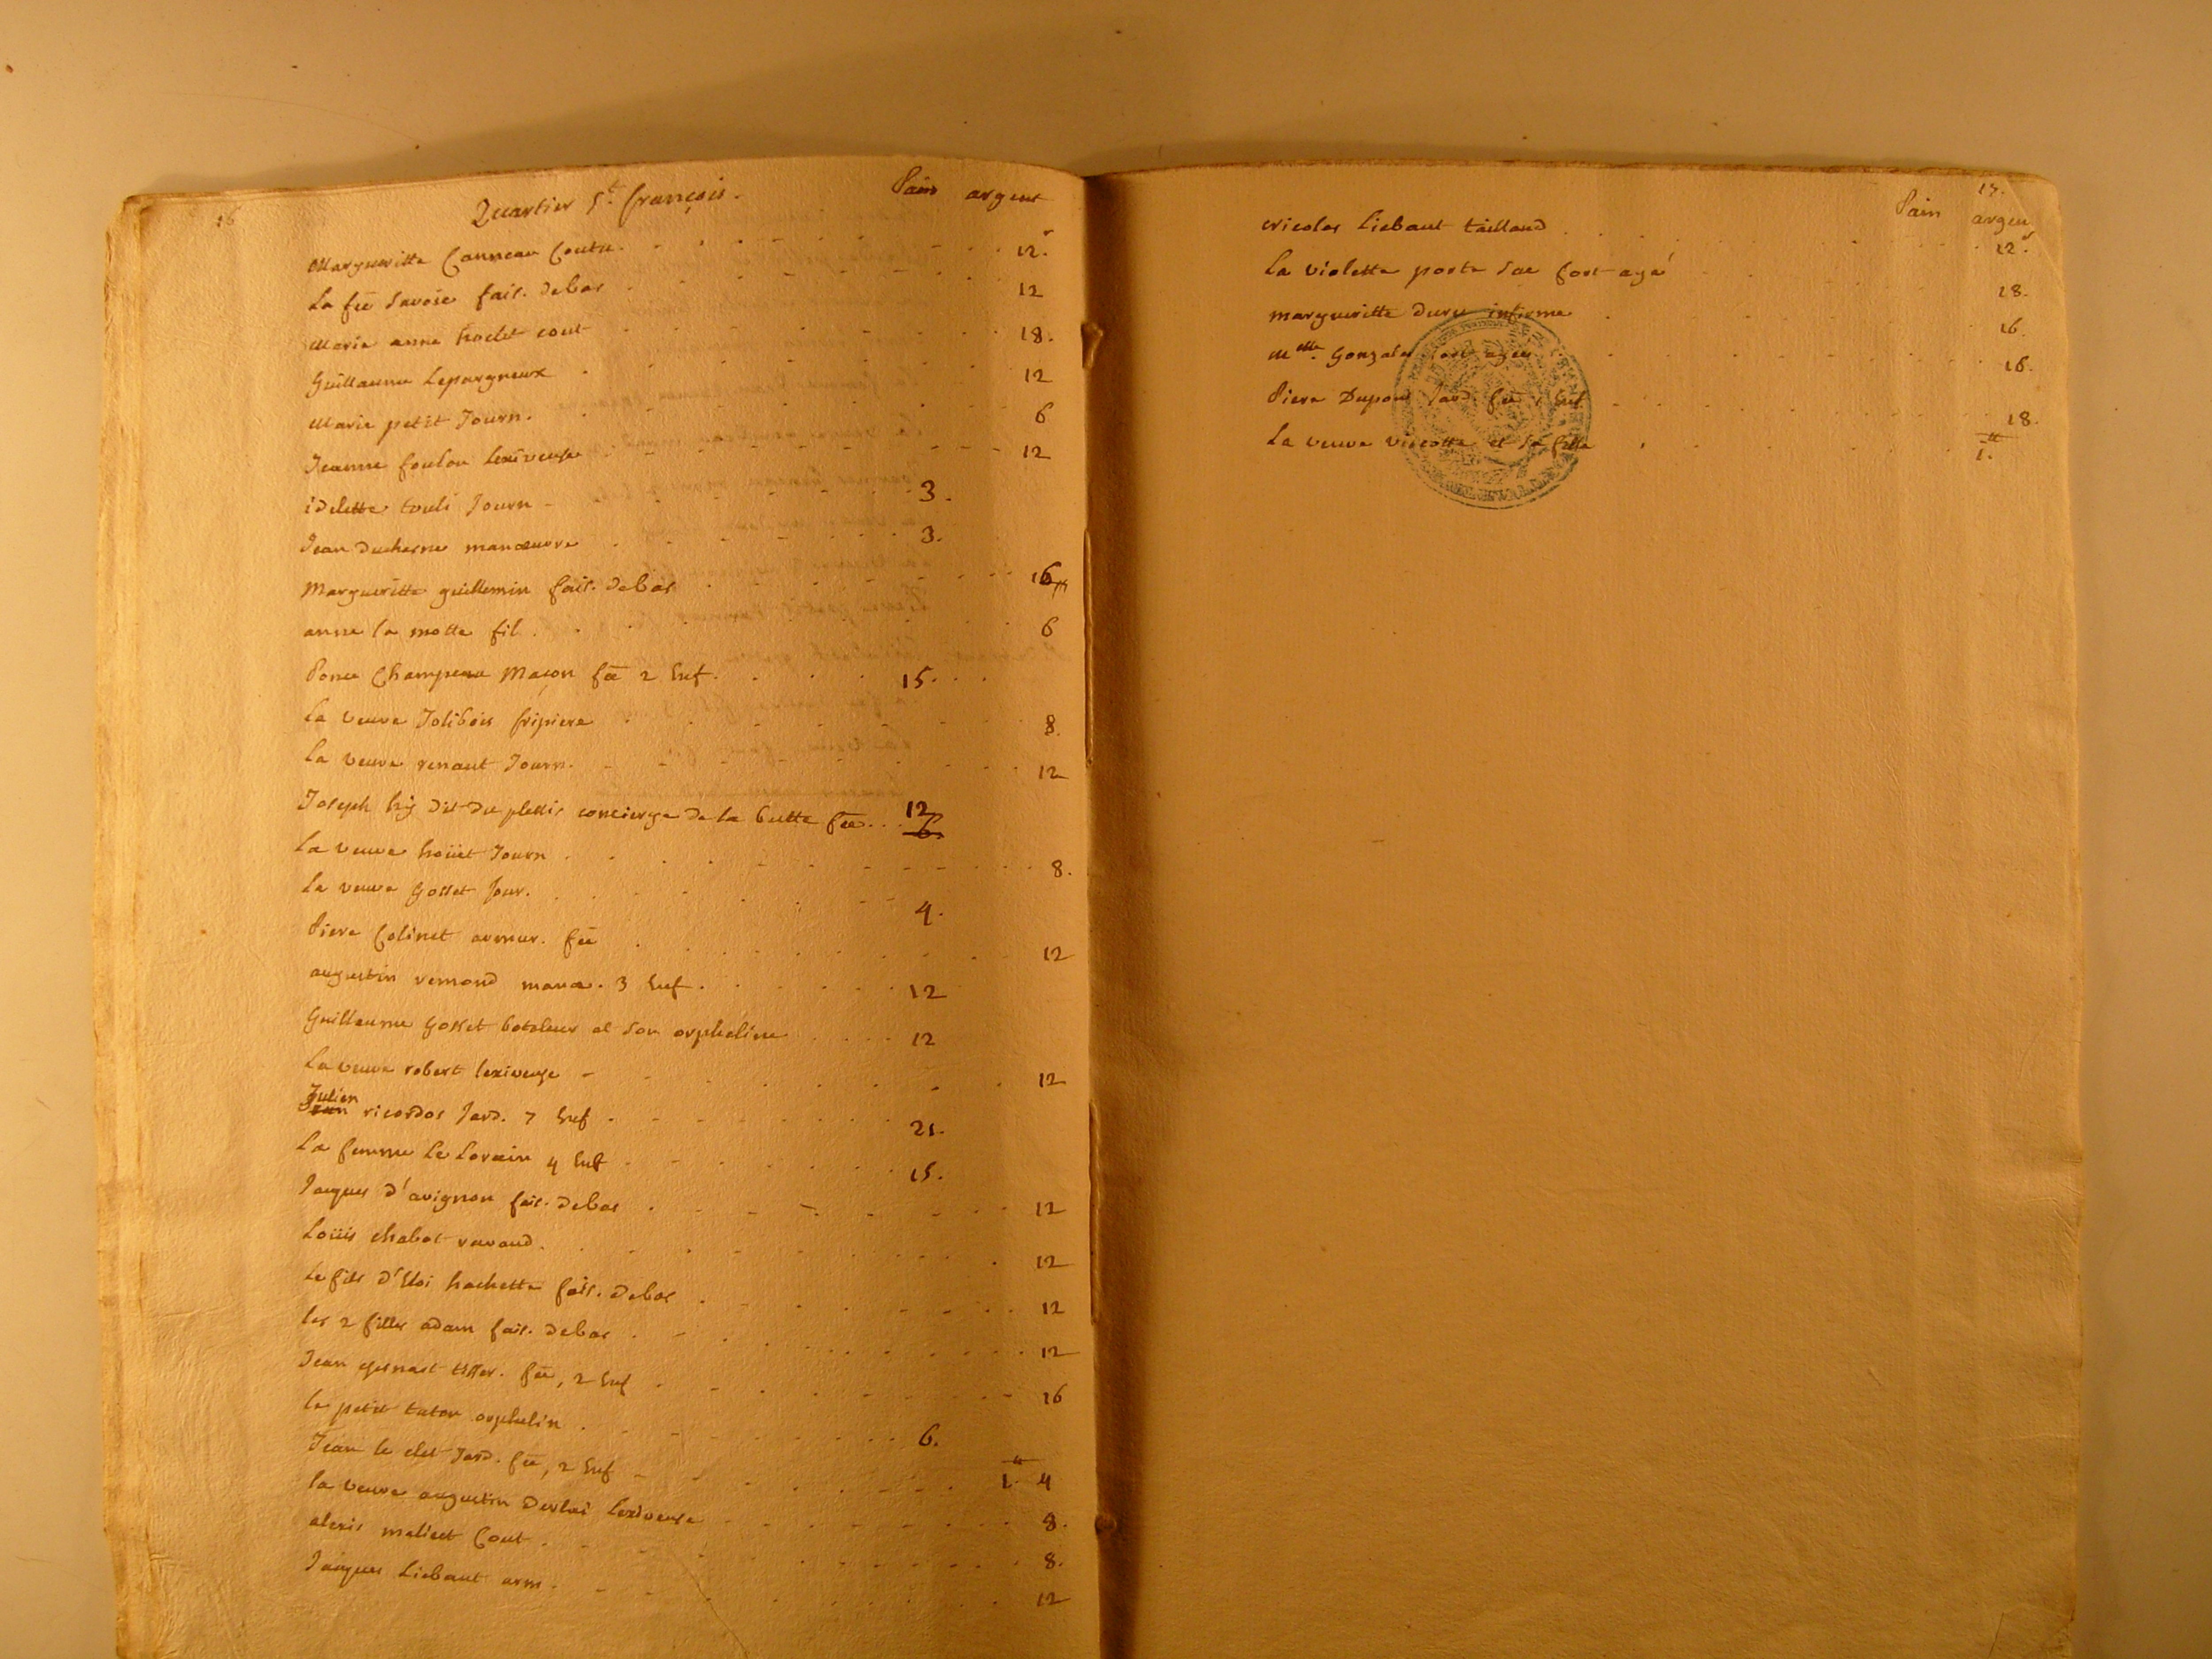 16
Quartier St. françois. Pain argent
Margueritte Canneau Coutu. 12s
La fee Savoie fais. debas 12
Marie anne hoclet cout 18.
Guillaume Lepargneux 12
Marie petit Journ. 6
Jeanne foulon lexiveuse 12
idelette touli Journ 3.
Jean duchesne manœuvre 3.
Margueritte guillemin fais. debas 16
anne la motte fil. 6
Ponce Champeau Maçon fee 2 Enf. 15.
La veuve Jolibois fripiere 8.
La veuve renaut Journ. 12
Joseph dit du plessis concierge de la butte fee 12 6.
La veuve hoüet Journ 8.
La veuve Gosset Jour. 4.
Piere Colinet armur. fee 12
augustin remond manœ. 3 Enf. 12
Guillaume Gosset boteleur et son orpheline 12
La veuve robert lexiveuse 12
Julien
Jean ricordos Jard. 7 Enf 21.
La femme Le Lorain 4 Enf 15.
Jacques d'avignon fais. debas 12
Loüis chabot ravaud. 12
Le fils d'Eloi hachette fais. debas 12
les 2 filles adam fais. debas 12
Jean tisser. fee, 2 Enf 16
le petit tutor orphelin 6.
Jean le clet Jard. fee, 2 Enf 1.tt 4
la veuve augustin lexiveuse 8.
alexis malicet Cout. 8.
Jacques Liebaut arm. 12
17.
Pain argen
Nicolas Liebaut tailland 12s.
La violette porte sac fort agé 18.
margueritte duru infirme 16.
Melle. Gonzales fort agée 16.
Piere Dupont Jard fee 1 Enf 18.
La veuve et sa fille 1.tt